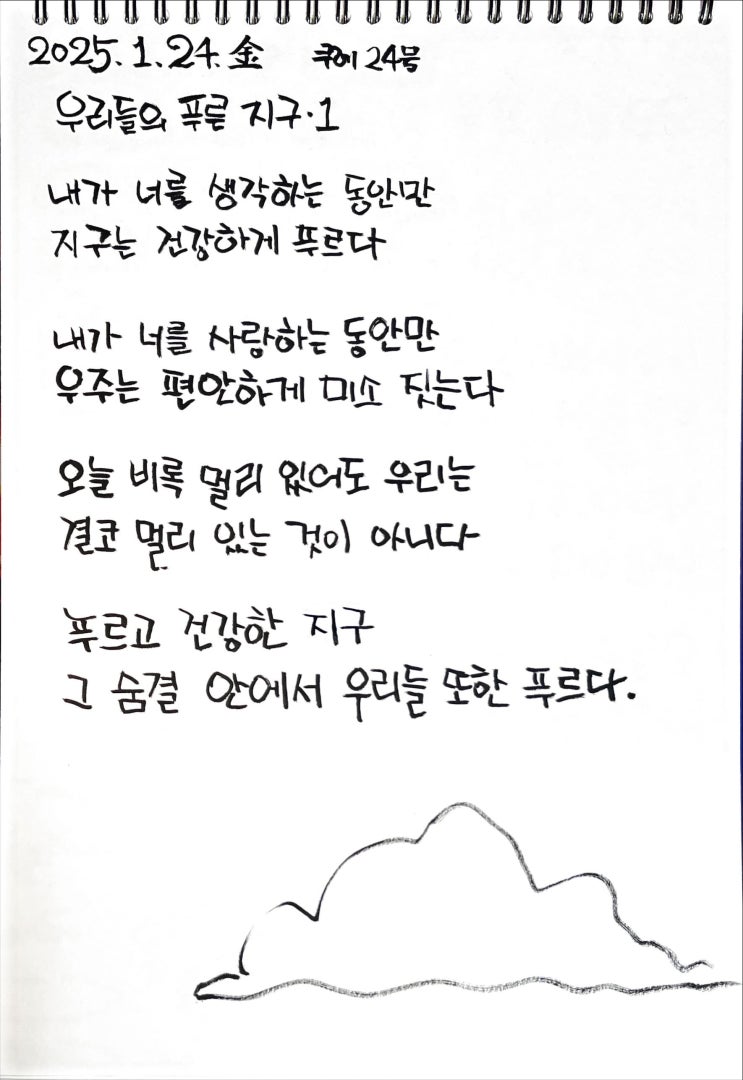 2025. 1. 24. 金
우리들의 푸른 지구·1
내가 너를 생각하는 동안만
지구는 건강하게 푸르다
내가 너를 사랑하는 동안만
우주는 편안하게 미소 짓는다
오늘 비록 멀리 있어도 우리는
결코 멀리 있는 것이 아니다
푸르고 건강한 지구
그 숨결 안에서 우리들 또한 푸르다.